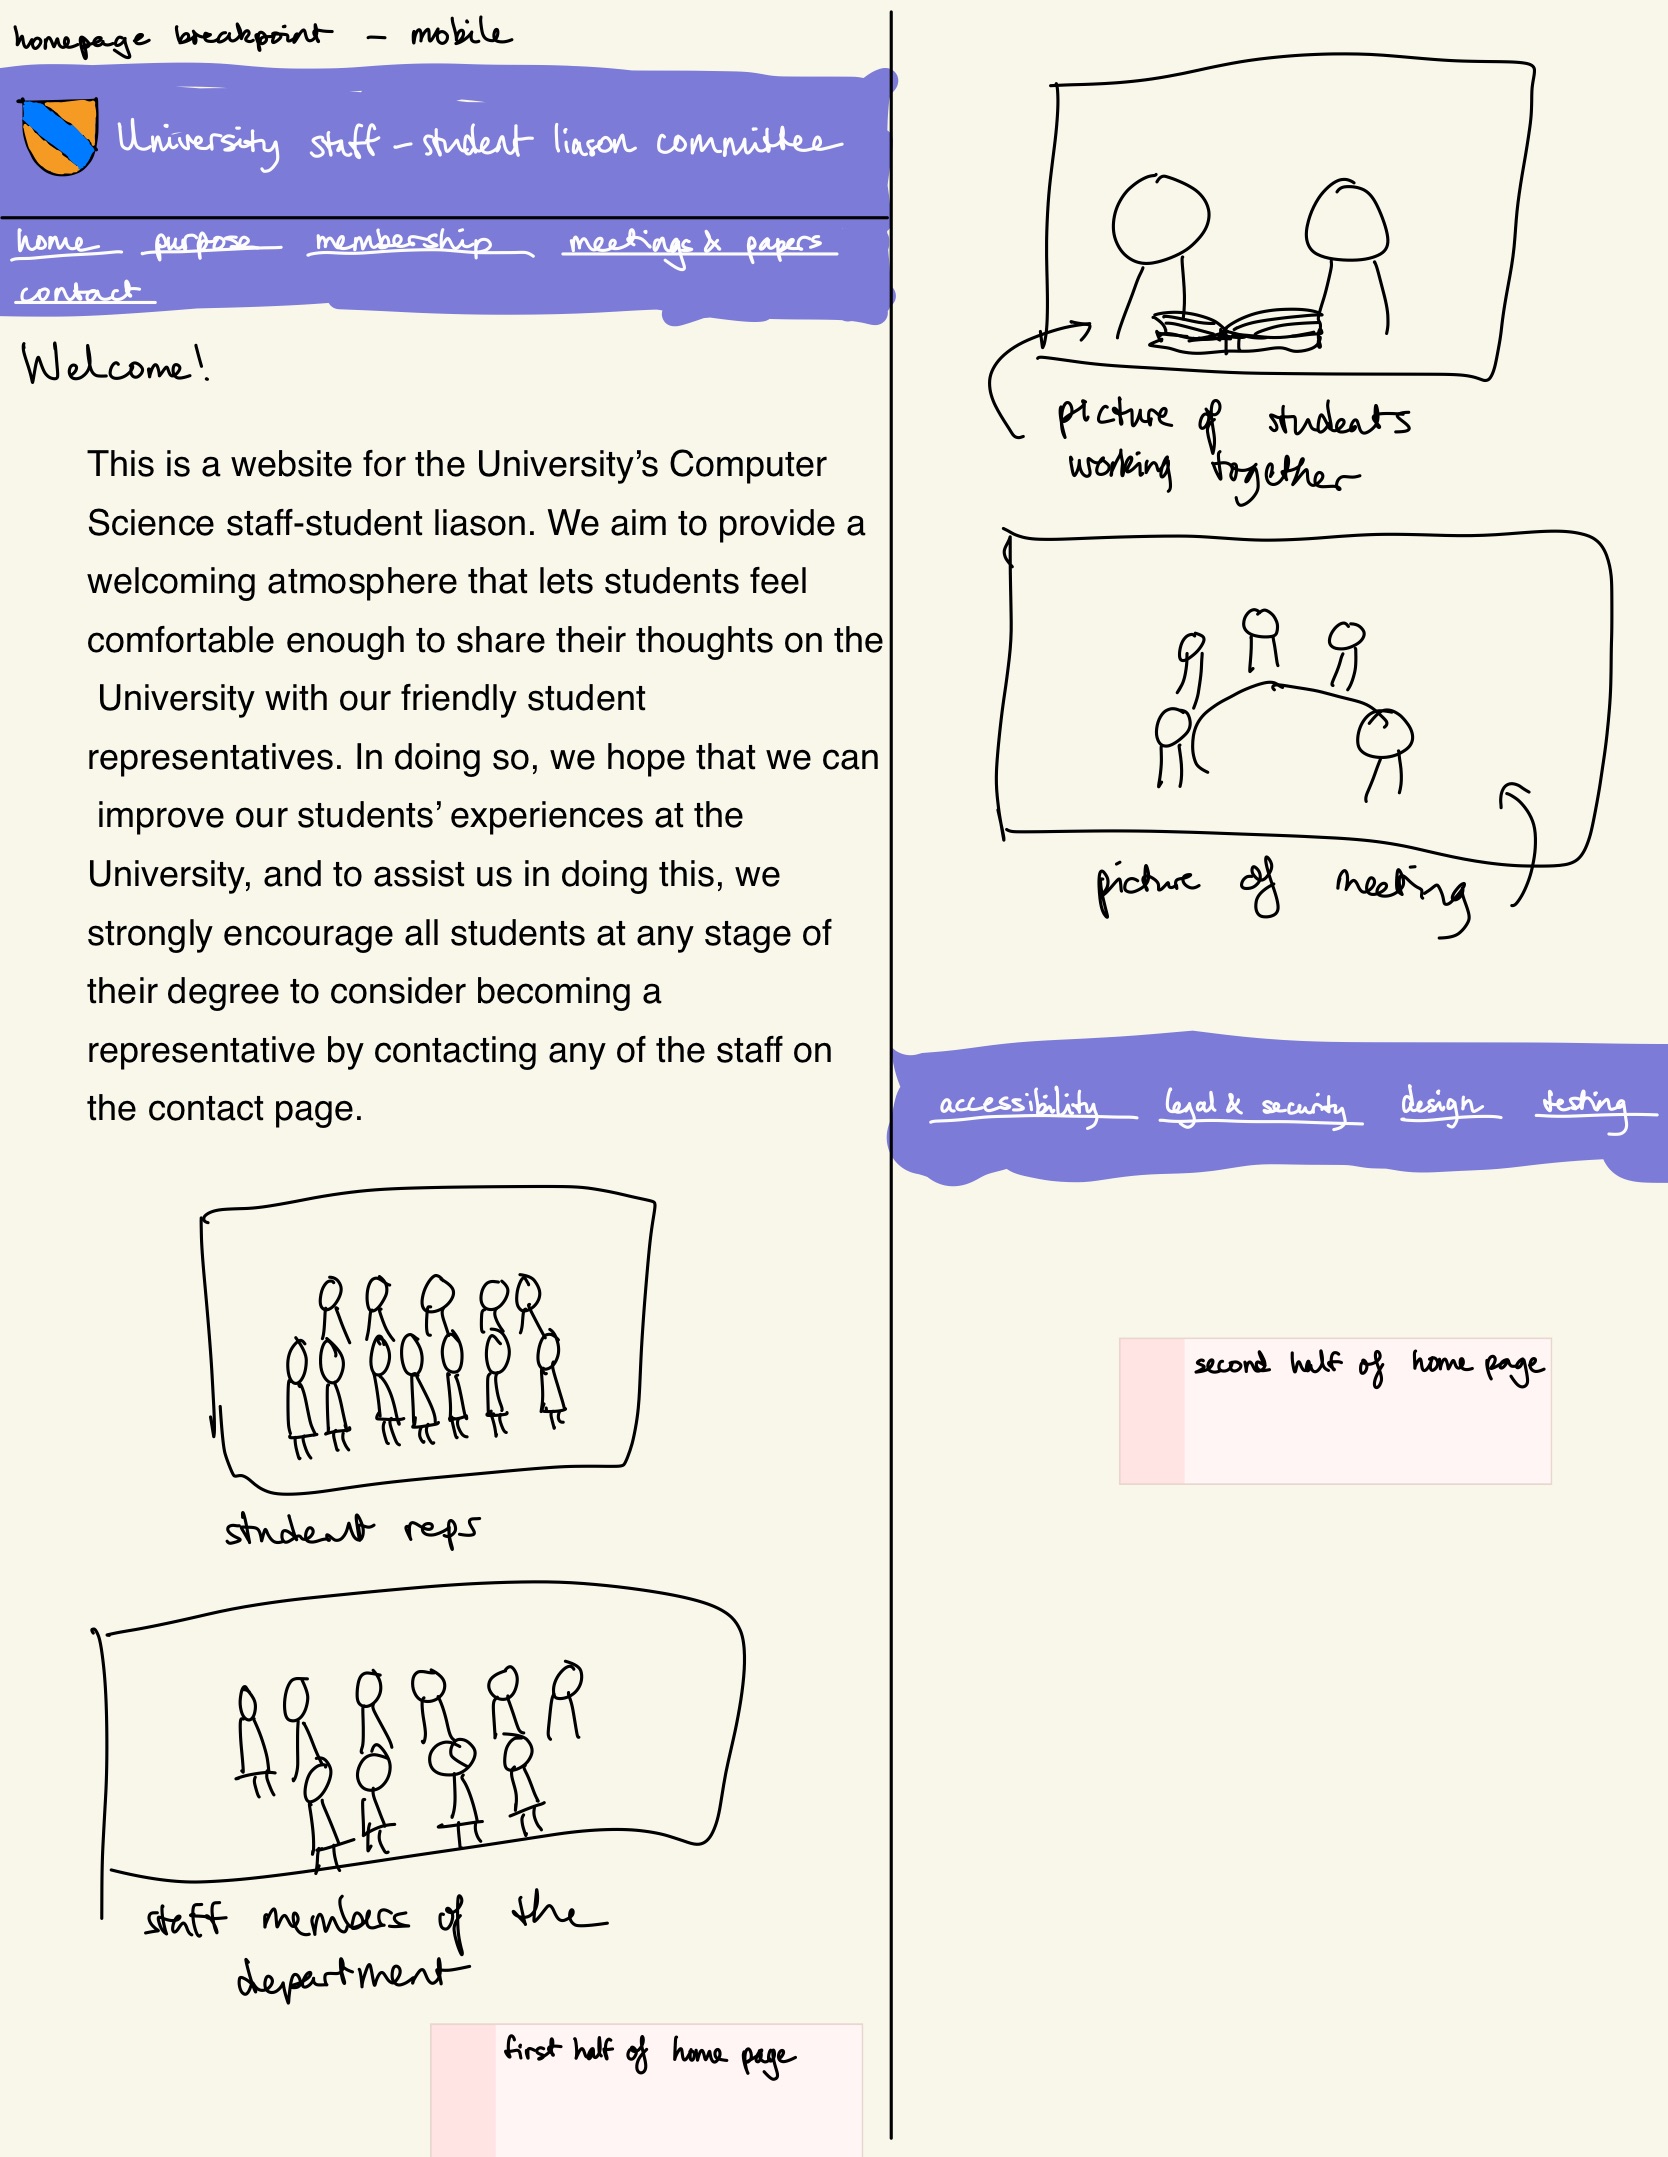 homepage breakpoint - mobile
University staff-student liason committee
home purpose membership meetings & papers
contact
Welcome!
This is a website for the University’s Computer
Science staff-student liason. We aim to provide a
welcoming atmosphere that lets students feel
comfortable enough to share their thoughts on the
University with our friendly student
representatives. In doing so, we hope that we can
improve our students’ experiences at the
University, and to assist us in doing this, we
strongly encourage all students at any stage of
their degree to consider becoming a
representative by contacting any of the staff on
the contact page.
student reps
staff members of the
department
first half of home page
picture of students
working together
picture of meeting
accessibility legal & security design testing
second half of home page